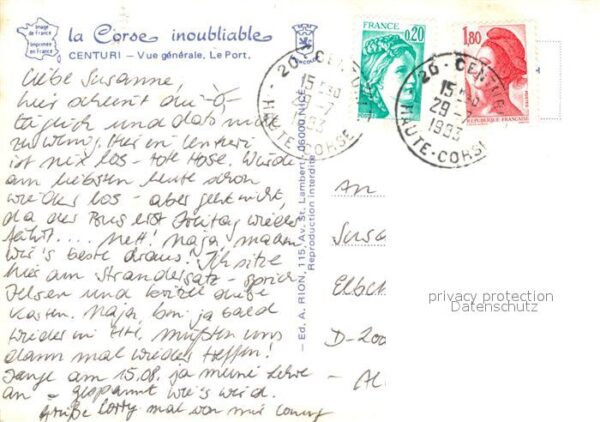 Image de France
Imprimée en France
la Corse inoubliable
CENTURI – Vue générale, Le Port.
Liebe Susanne,
hier scheint die
täglich und das nicht
zu wenig. Hier in Centuri
ist nix los – tote Hose. Würde
am liebsten heute schon
wieder los – aber geht nicht,
da der Bus erst Freitag wieder
fährt.... nett! Naja, machen
wir's beste draus. Ich sitze
hier am Strandersatz – sprich
Felsen und kritzle diese
Karten. Naja, bin ja bald
wieder in HH. Müßten uns
dann mal wieder treffen!
Fange am 15.08. ja meine Lehre
an – gespannt wie's wird.
Grüße mal von mir
– Ed. A. RION, 115, Av. St. Lambert, 06000 NICE –
Reproduction interdite
FRANCE
0,20
1,80
REPUBLIQUE FRANCAISE
20 - CENTURI
15 30
29-7
1983
HAUTE-CORSE
20 - CENTURI
15 30
29-7
1983
HAUTE-CORSE
An
Susa
Elbch
D-200
privacy protection
Datenschutz